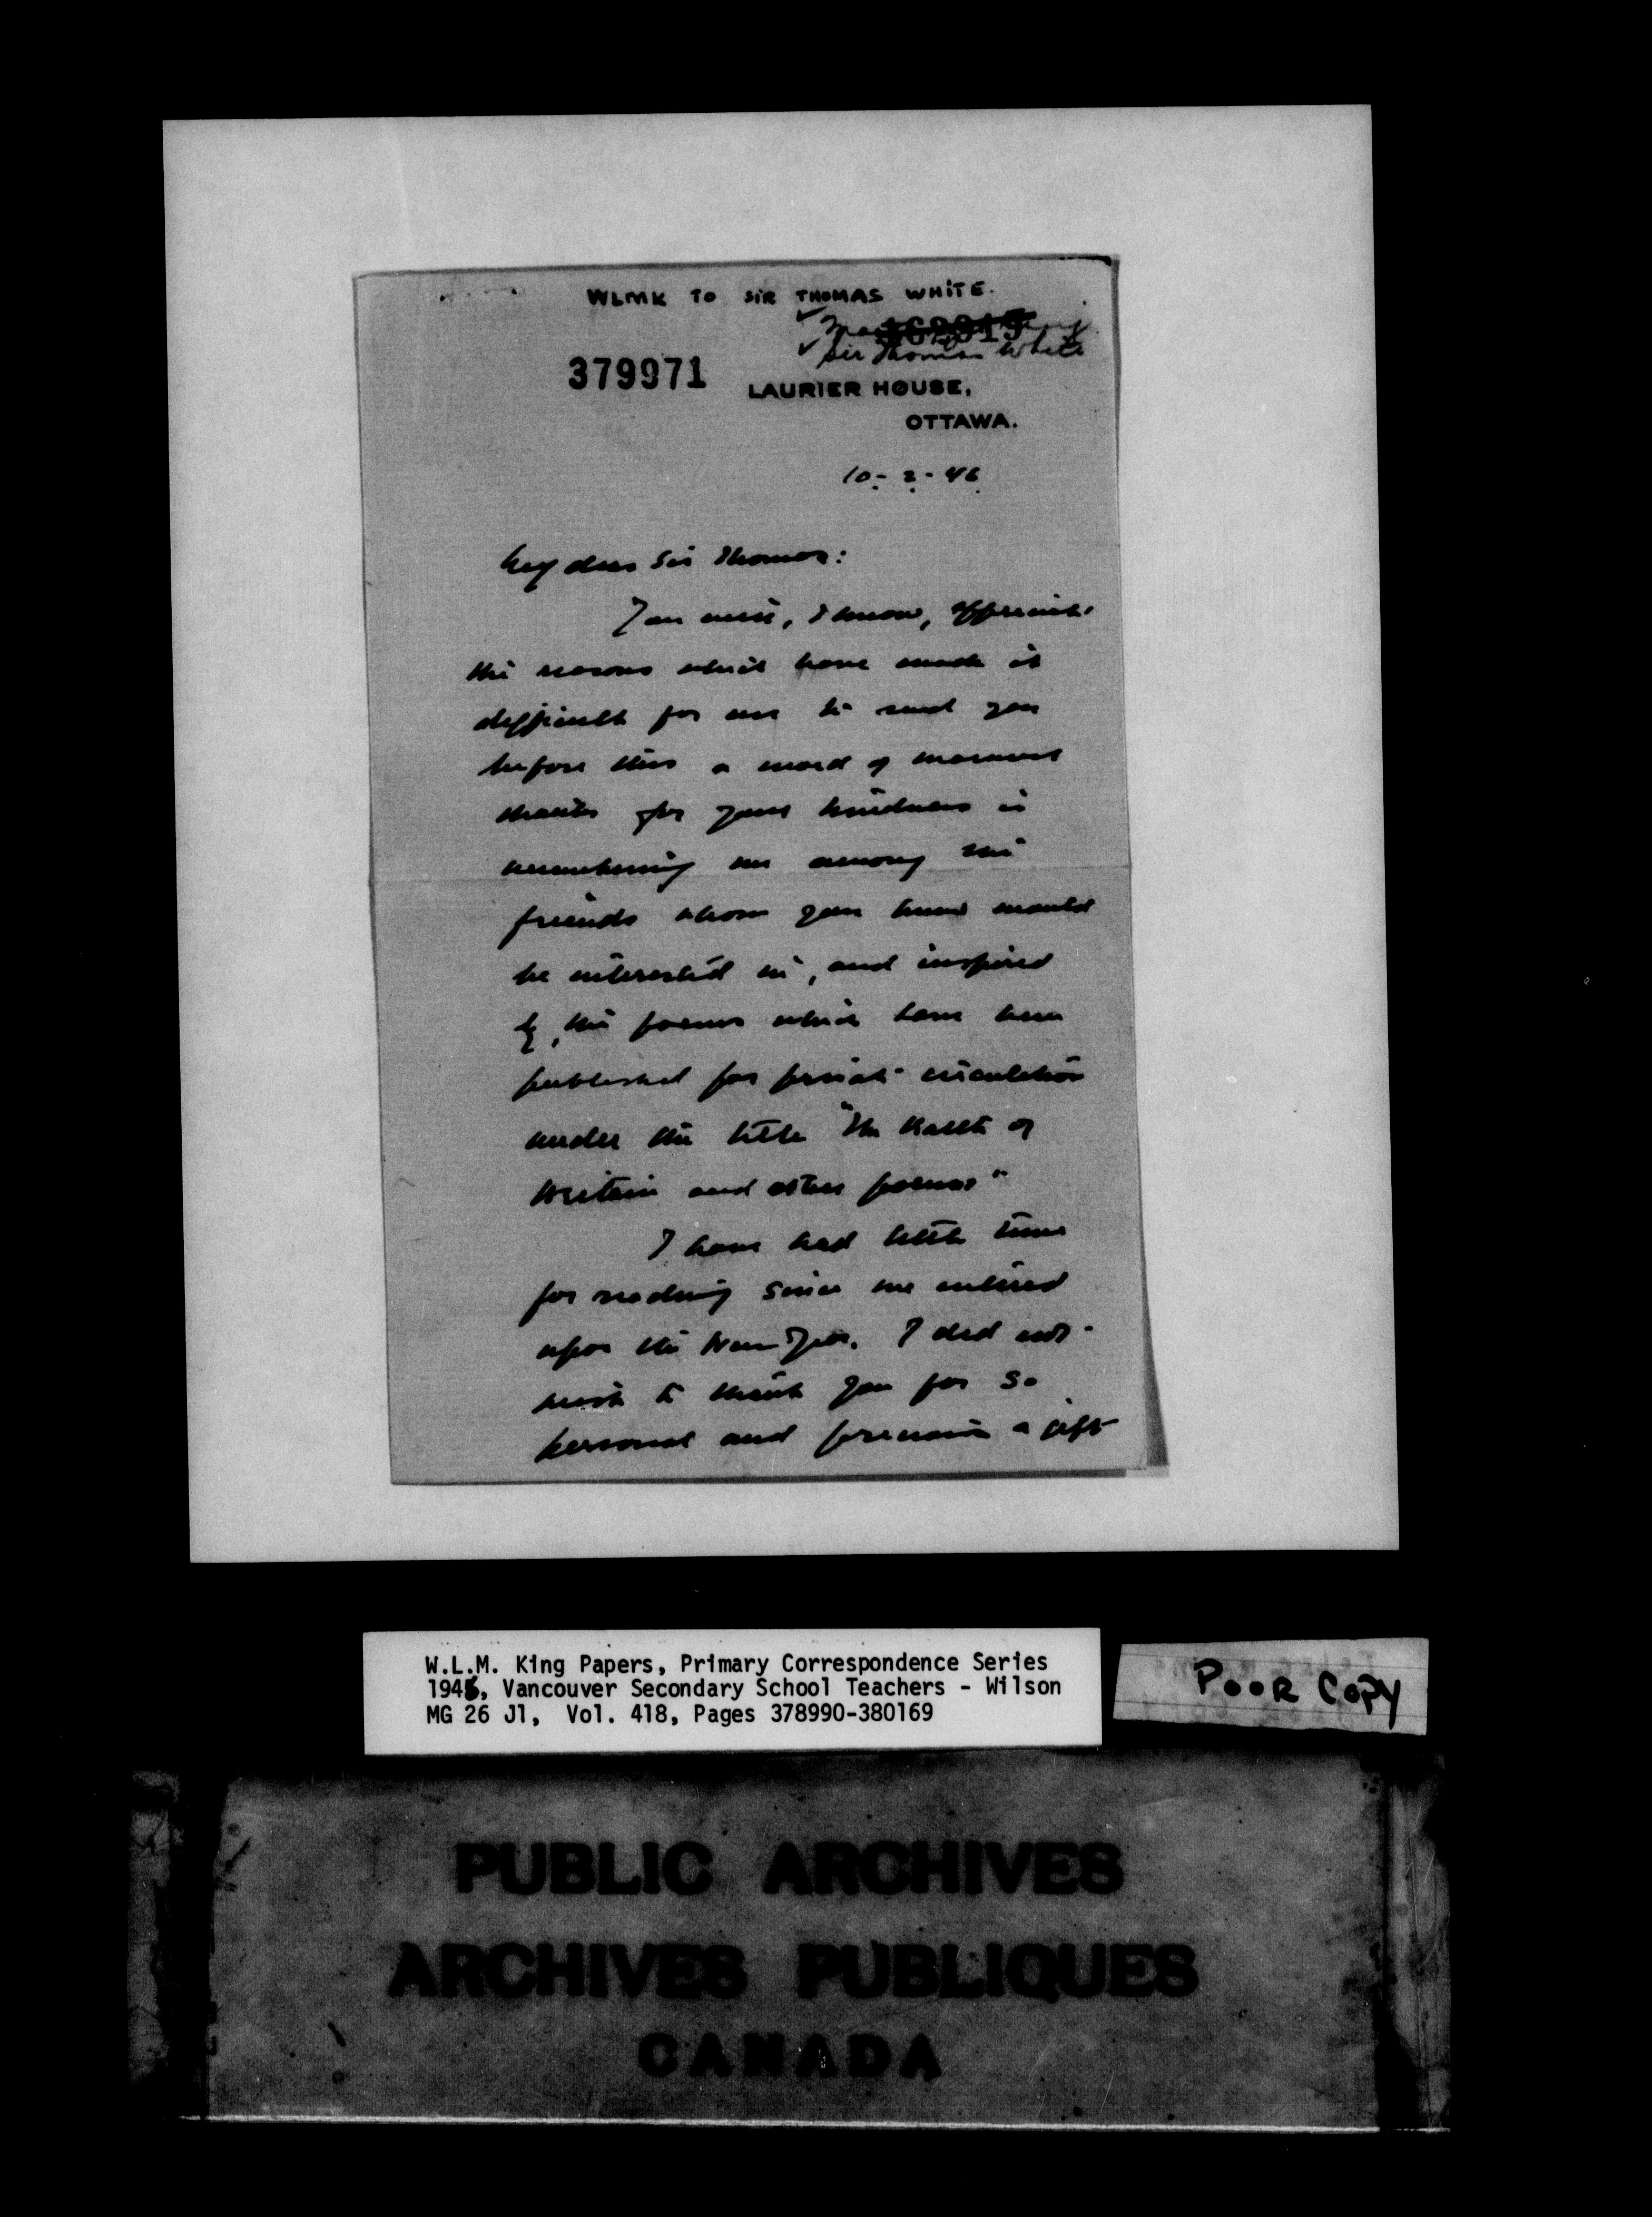 WLMK TO SIR THOMAS WHITE.
Sir Thomas White
379971
LAURIER HOUSE,
OTTAWA.
10-2-46
My dear Sir Thomas:
You will, I know, appreciate
the reasons which have made it
difficult for me to send you
before this a word of warmest
thanks for your kindness in
remembering me among the
friends whom you knew would
be interested in, and inspired
by, the poems which have been
published for private circulation
under the title "The Battle of
Britain and other poems"
I have had little time
for reading since we entered
upon the New Year. I did not
wish to thank you for so
personal and precious a gift
W.L.M. King Papers, Primary Correspondence Series
1946, Vancouver Secondary School Teachers - Wilson
MG 26 J1, Vol. 418, Pages 378990-380169
POOR COPY
PUBLIC ARCHIVES
ARCHIVES PUBLIQUES
CANADA